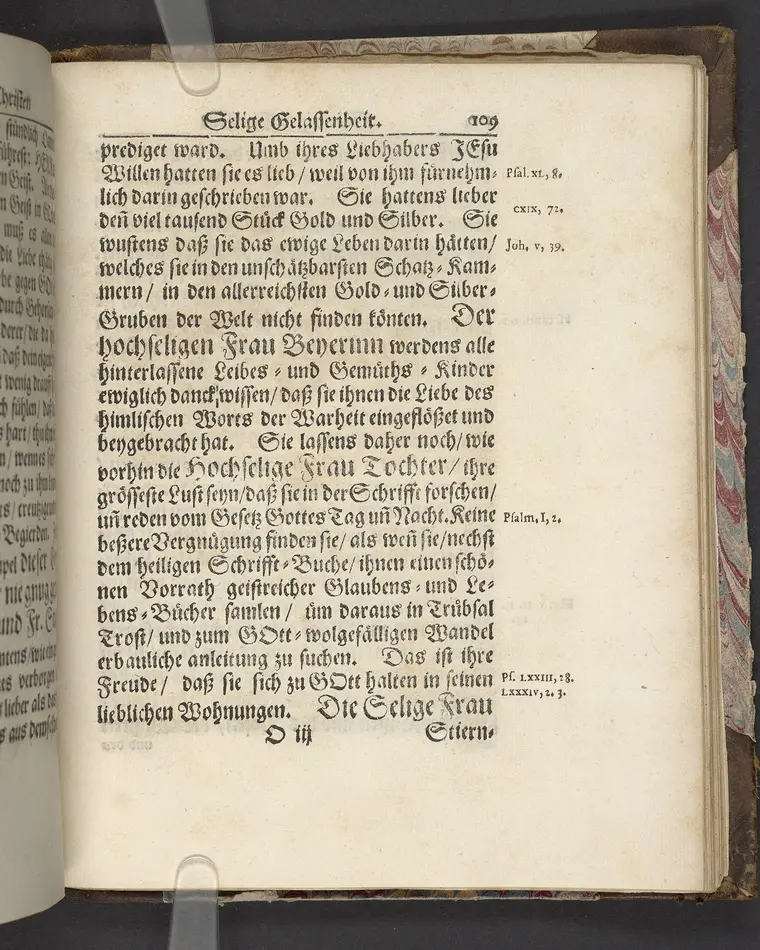 Selige Gelassenheit. 109
prediget ward. Umb ihres Liebhabers JEsu
Willen hatten sie es lieb / weil von ihm fürnehm-
lich darin geschrieben war. Sie hattens lieber
deñ viel tausend Stück Gold und Silber. Sie
wustens daß sie das ewige Leben darin hätten /
welches sie in den unschätzbarsten Schatz-Kam-
mern / in den allerreichsten Gold- und Silber-
Gruben der Welt nicht finden könten. Der
hochseligen Frau Beyerinn werdens alle
hinterlassene Leibes- und Gemüths-Kinder
ewiglich danck wissen / daß sie ihnen die Liebe des
himlischen Worts der Warheit eingeflößet und
beygebracht hat. Sie lassens daher noch / wie
vorhin die Hochselige Frau Tochter / ihre
grösseste Lust seyn / daß sie in der Schrifft forschen /
uñ reden vom Gesetz Gottes Tag uñ Nacht. Keine
beßere Vergnügung finden sie / als weñ sie / nechst
dem heiligen Schrifft-Buche / ihnen einen schö-
nen Vorrath geistreicher Glaubens- und Le-
bens-Bücher samlen / üm daraus in Trübsal
Trost / und zum GOtt-wolgefälligen Wandel
erbauliche anleitung zu suchen. Das ist ihre
Freude / daß sie sich zu GOtt halten in seinen
lieblichen Wohnungen. Die Selige Frau
O iij Stiern-
Psal. XL, 8.
CXIX, 72.
Joh. V, 39.
Psalm. I, 2.
Ps. LXXIII, 28.
LXXXIV, 2. 3.